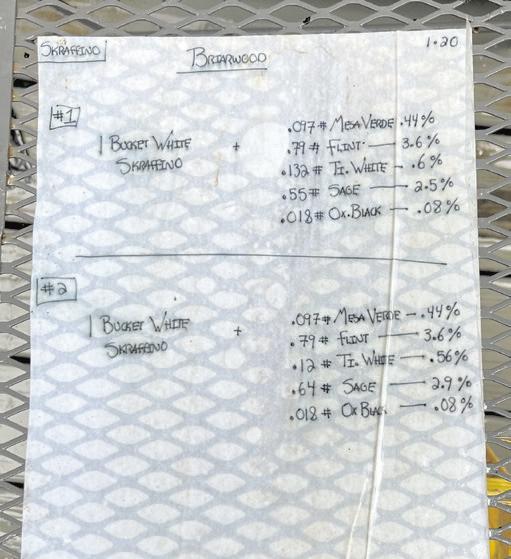 SKRAFFINO
BRIARWOOD
1.20
#1
1 BUCKET WHITE
SKRAFFINO
+
.097# MESA VERDE .44%
.79# FLINT — 3.6%
.132# TI. WHITE — .6%
.55# SAGE — 2.5%
.018# OX. BLACK — .08%
#2
1 BUCKET WHITE
SKRAFFINO
+
.097# MESA VERDE — .44%
.79# FLINT — 3.6%
.12# TI. WHITE — .56%
.64# SAGE — 2.9%
.018# OX BLACK — .08%